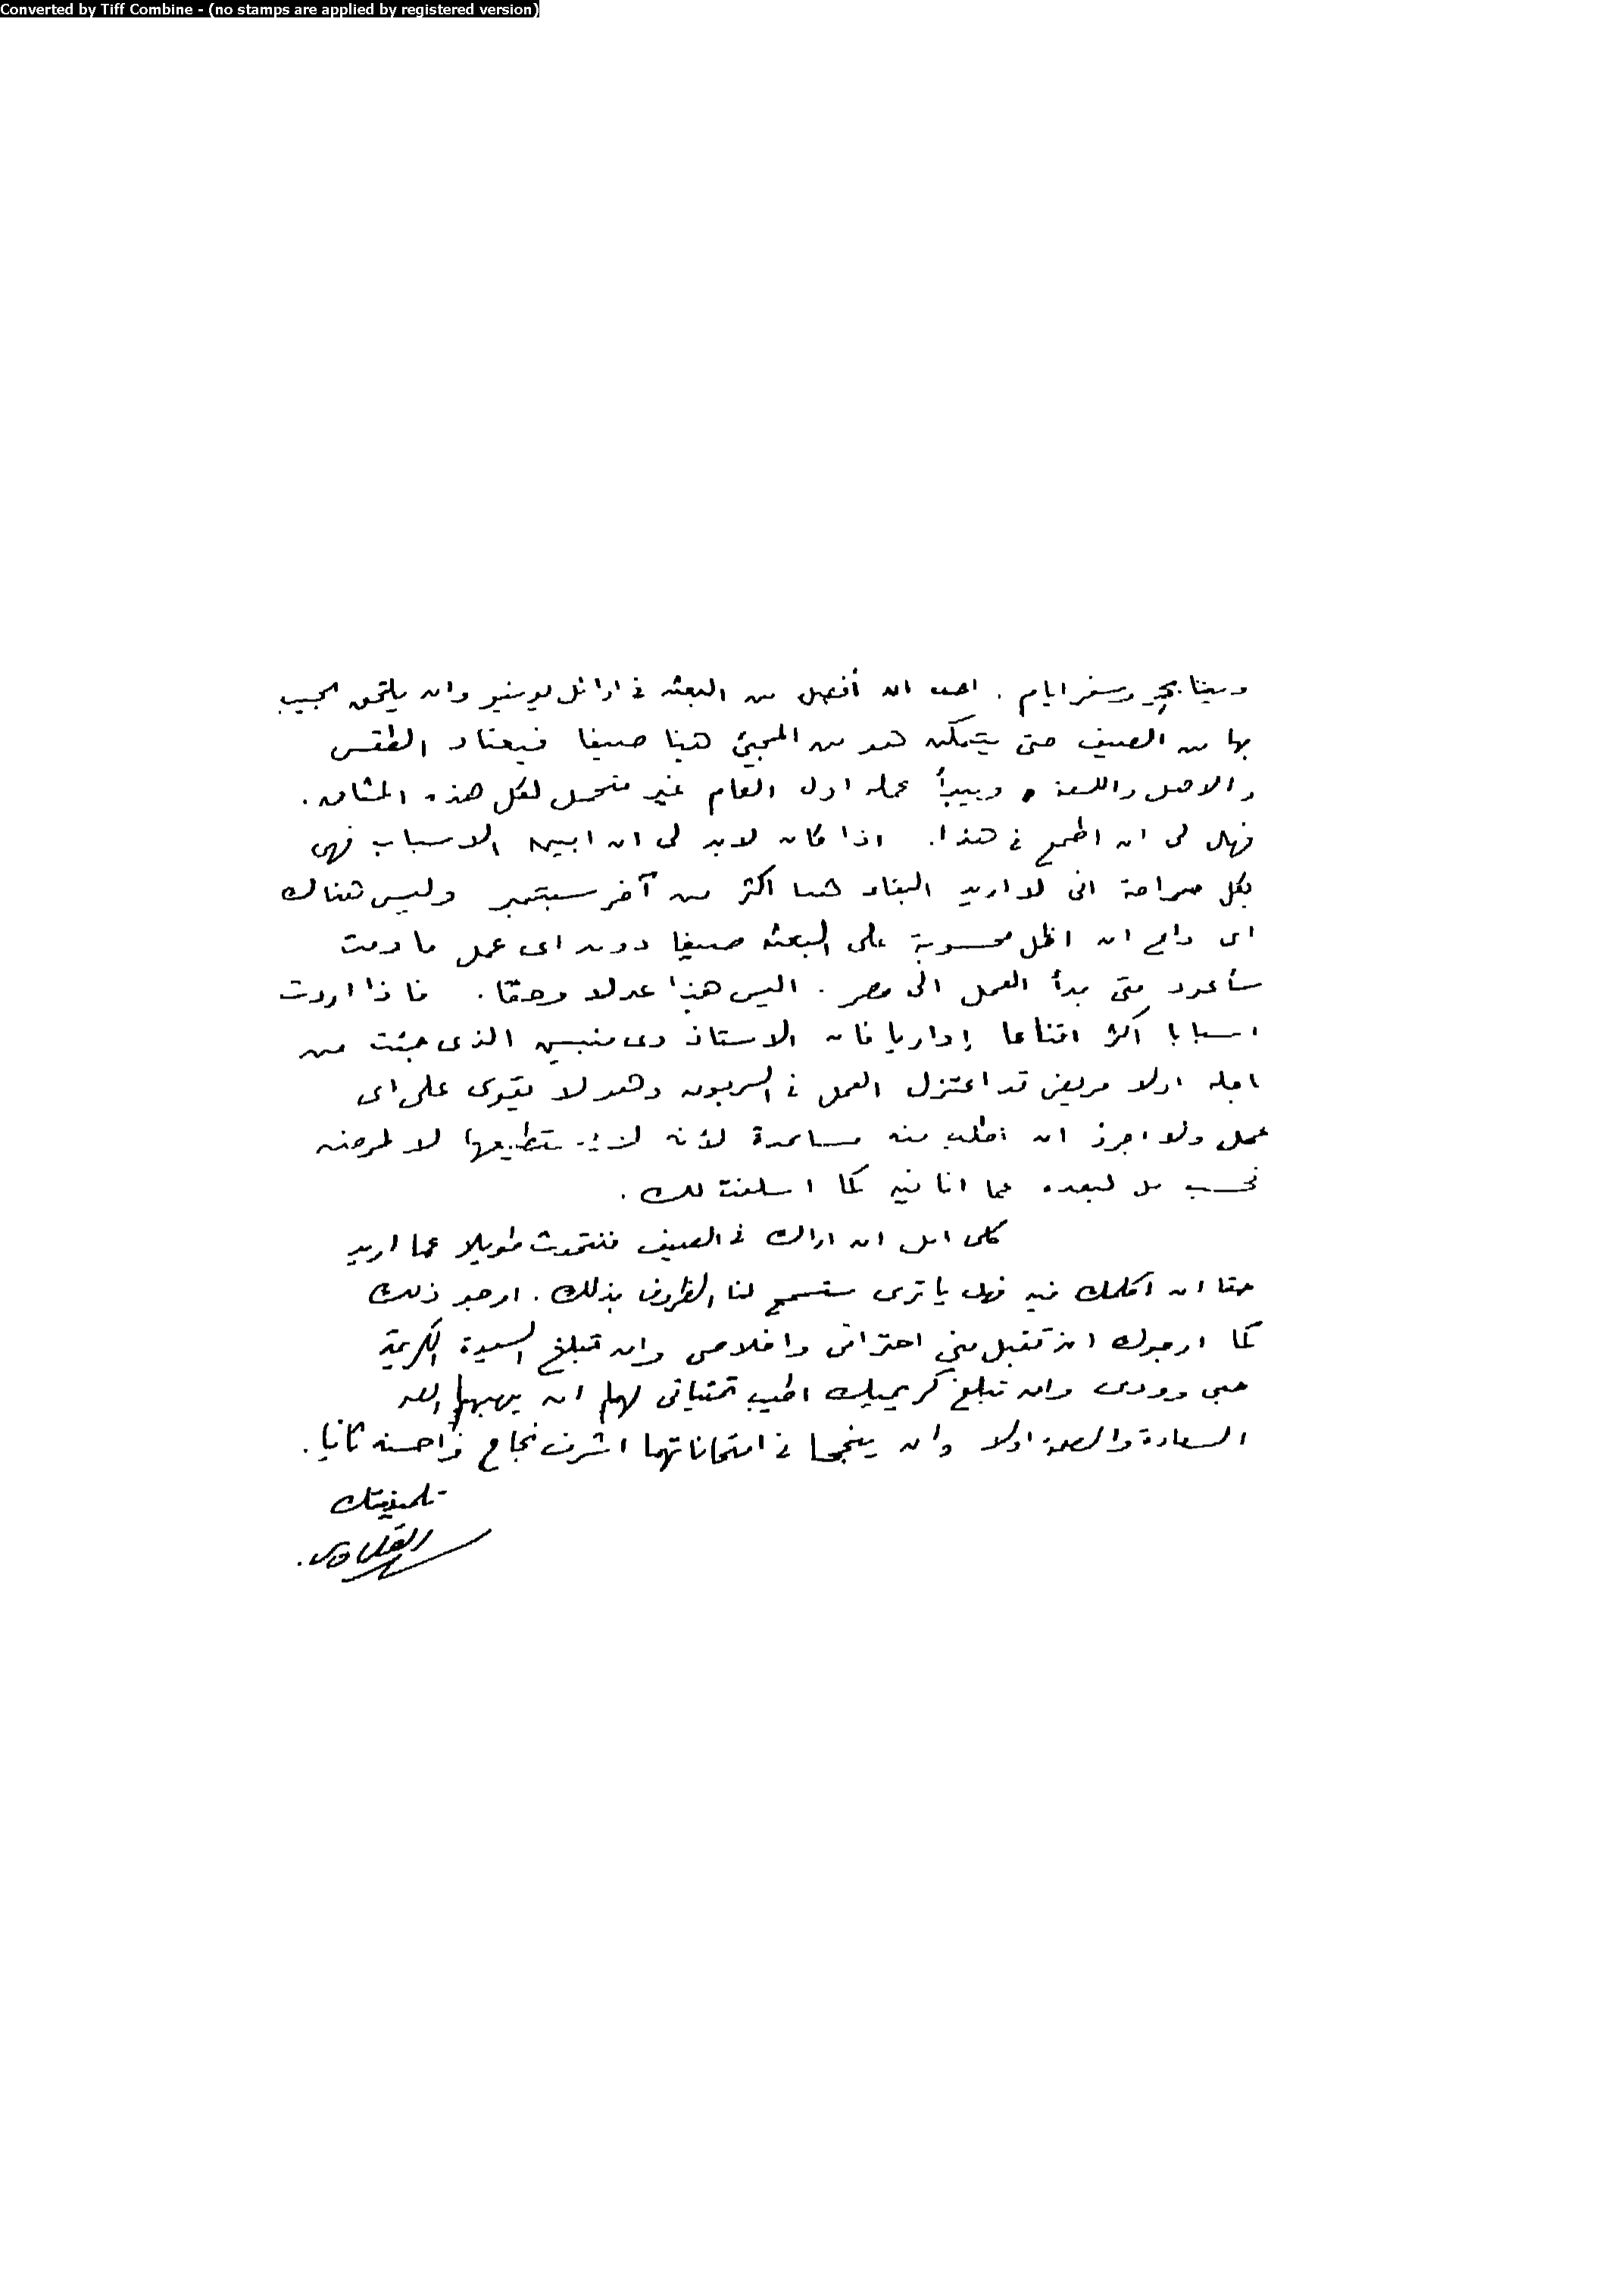 Converted by Tiff Combine - (no stamps are applied by registered version)
وسفر ايام . احب ان أفصل من البعثه فى اوائل يونيو وان يلتحق نجيب
بها من الصيف حتى يتمكن هو من المجئ هنا صيفا فيعتاد الطقس
والاهل واللغة وبيدأ عمله اول العام غير متحمل لكل هذه المشاق .
فهل لى ان اطمع فى هذا . اذا كان لابد لى ان ابين الاسباب فهى
بكل صراحة انى لا اريد البقاء هنا اكثر من آخر سبتمبر وليس هناك
اى داع ان اظل محسوبة على البعثه صيفا دون اى عمل ما دمت
سأعود متى بدأ العمل الى مصر . اليس هذا عدلا وحقا . فاذا اردت
اسبابا اكثر اقناعا إداريا فان الاستاذ دى منبين الذى جئت من
اجله اولا مريض قد اعتزل العمل فى السربون وهو لا يقوى على اى
عمل ولا اجرؤ ان اطلب منه مساعدة لأنه لا يستطيعها لا لمرضه
فحسب بل لبعده عما انا فيه كما اسلفت لك .
كلى امل ان اراك فى الصيف فنتحدث طويلا عما اريد
حقا ان اكلمك فيه فهل يا ترى ستسمح لنا الظروف بذلك . ارجو ذلك
كما ارجوك ان تقبل منى احترامى واخلاصى وان تبلغ السيدة الكريمة
حبى وودى وان تبلغ كريميك اطيب تمنياتى لهما ان يهبهما الله
السعادة والصحة اولا وان ينجحا فى امتحاناتهما اشرف نجاح واحسنه ثانيا .
تلميذتك
القلماوى .